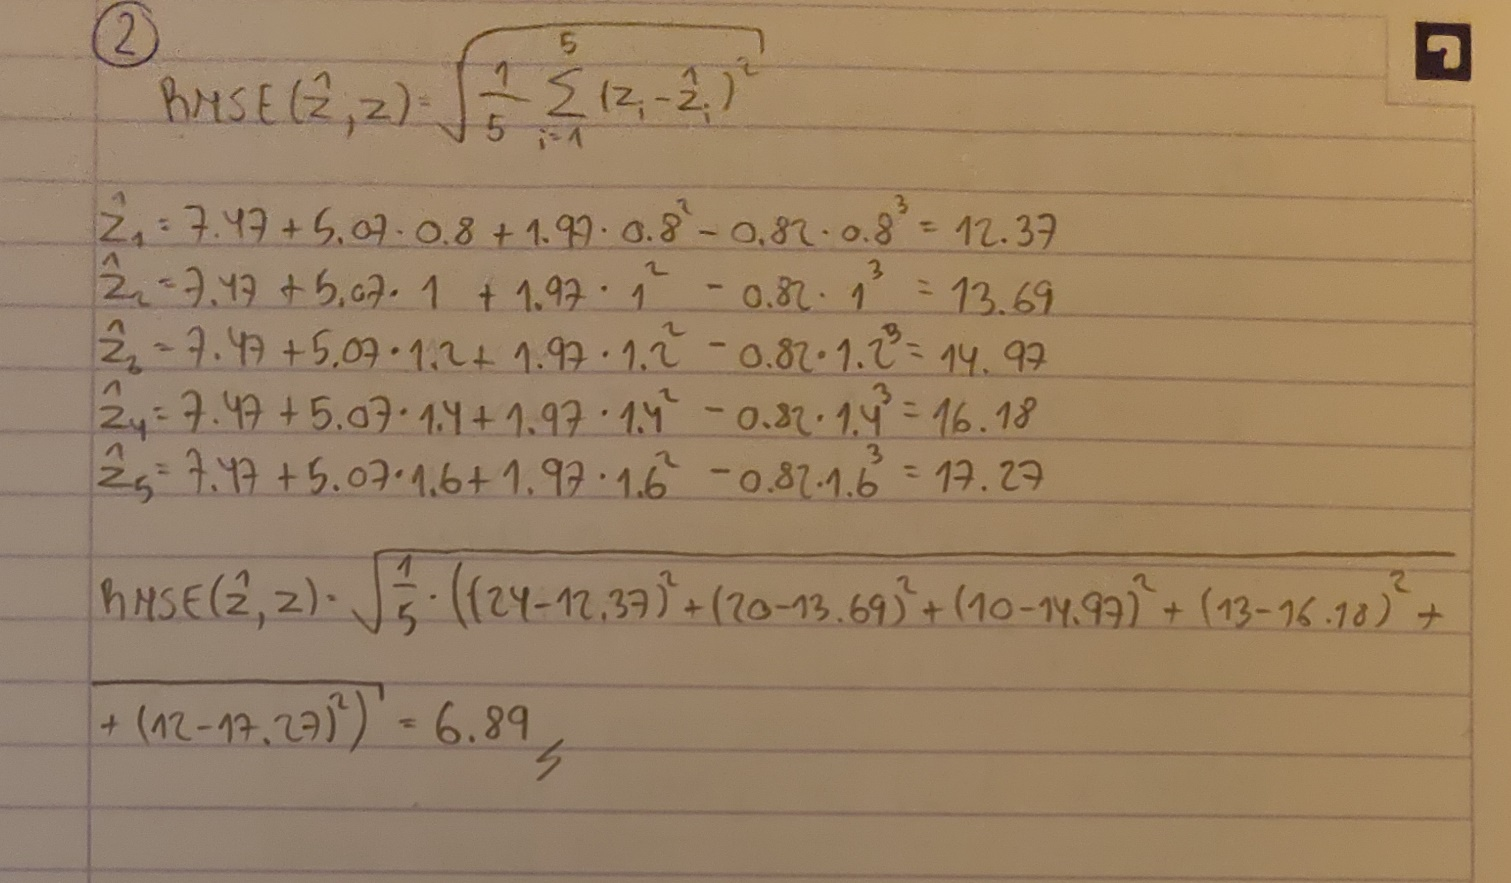 ②
RMSE(ẑ, z) = √(1/5 ∑_{i=1}^{5} (z_i - ẑ_i)²)
ẑ₁ = 7.47 + 5.07 · 0.8 + 1.97 · 0.8² - 0.82 · 0.8³ = 12.37
ẑ₂ = 7.47 + 5.07 · 1 + 1.97 · 1² - 0.82 · 1³ = 13.69
ẑ₃ = 7.47 + 5.07 · 1.2 + 1.97 · 1.2² - 0.82 · 1.2³ = 14.97
ẑ₄ = 7.47 + 5.07 · 1.4 + 1.97 · 1.4² - 0.82 · 1.4³ = 16.18
ẑ₅ = 7.47 + 5.07 · 1.6 + 1.97 · 1.6² - 0.82 · 1.6³ = 17.27
RMSE(ẑ, z) = √(1/5 · ((24 - 12.37)² + (20 - 13.69)² + (10 - 14.97)² + (13 - 16.18)² +
+ (12 - 17.27)²)) = 6.89